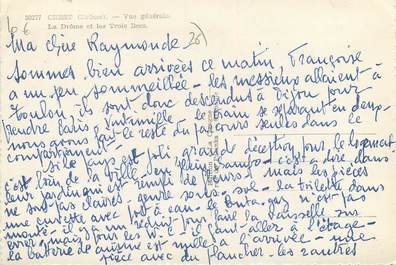 50277 CREST (Drôme). — Vue générale
La Drôme et les Trois Becs.
Ma chère Raymonde
sommes bien arrivées ce matin, Françoise
a un peu sommeillé - les messieurs allaient à
Toulon, ils sont donc descendus à Dijon pour
prendre Paris Vintimille - le train se séparant en deux
nous avons fait le reste du parcours seules dans ce
compartiment.
Si le pays est joli grande déception pour le logement
c'est loin de la ville, en plein champ - c'est à dire, dans
leur jardin qui est rempli de fleurs mais les pièces
ne sont pas claires - genre sous-sol - la toilette dans
une cuvette avec pot à eau - le butagaz n'est pas
monté - il y a un réchaud pour faire la vaisselle sur
évier mais pour les W.C. il faut aller à l'étage -
la batterie de cuisine est milles à l'arrivée - une
pièce avec du plancher - les 2 autres